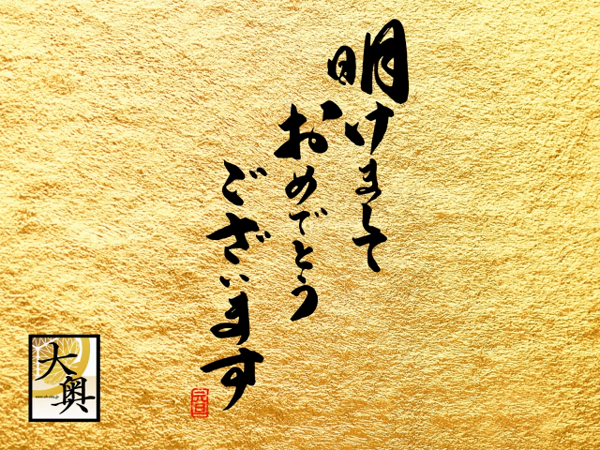 明けまして
おめでとう
ございます
元旦
大奥